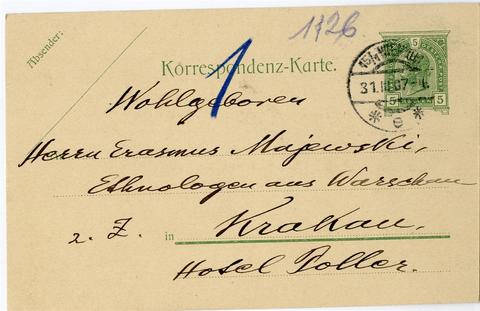 1126.
Absender:
Korrespondenz-Karte.
5
5 5
31.III.07
* e *
1
Wohlgeboren
Herrn Erasmus Majewski,
Ethnologen aus Warschau
z. Z. in Krakau,
Hotel Poller.